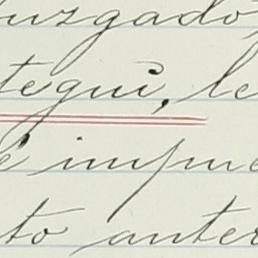 juzgado,
tegui, le
é impue
to anter